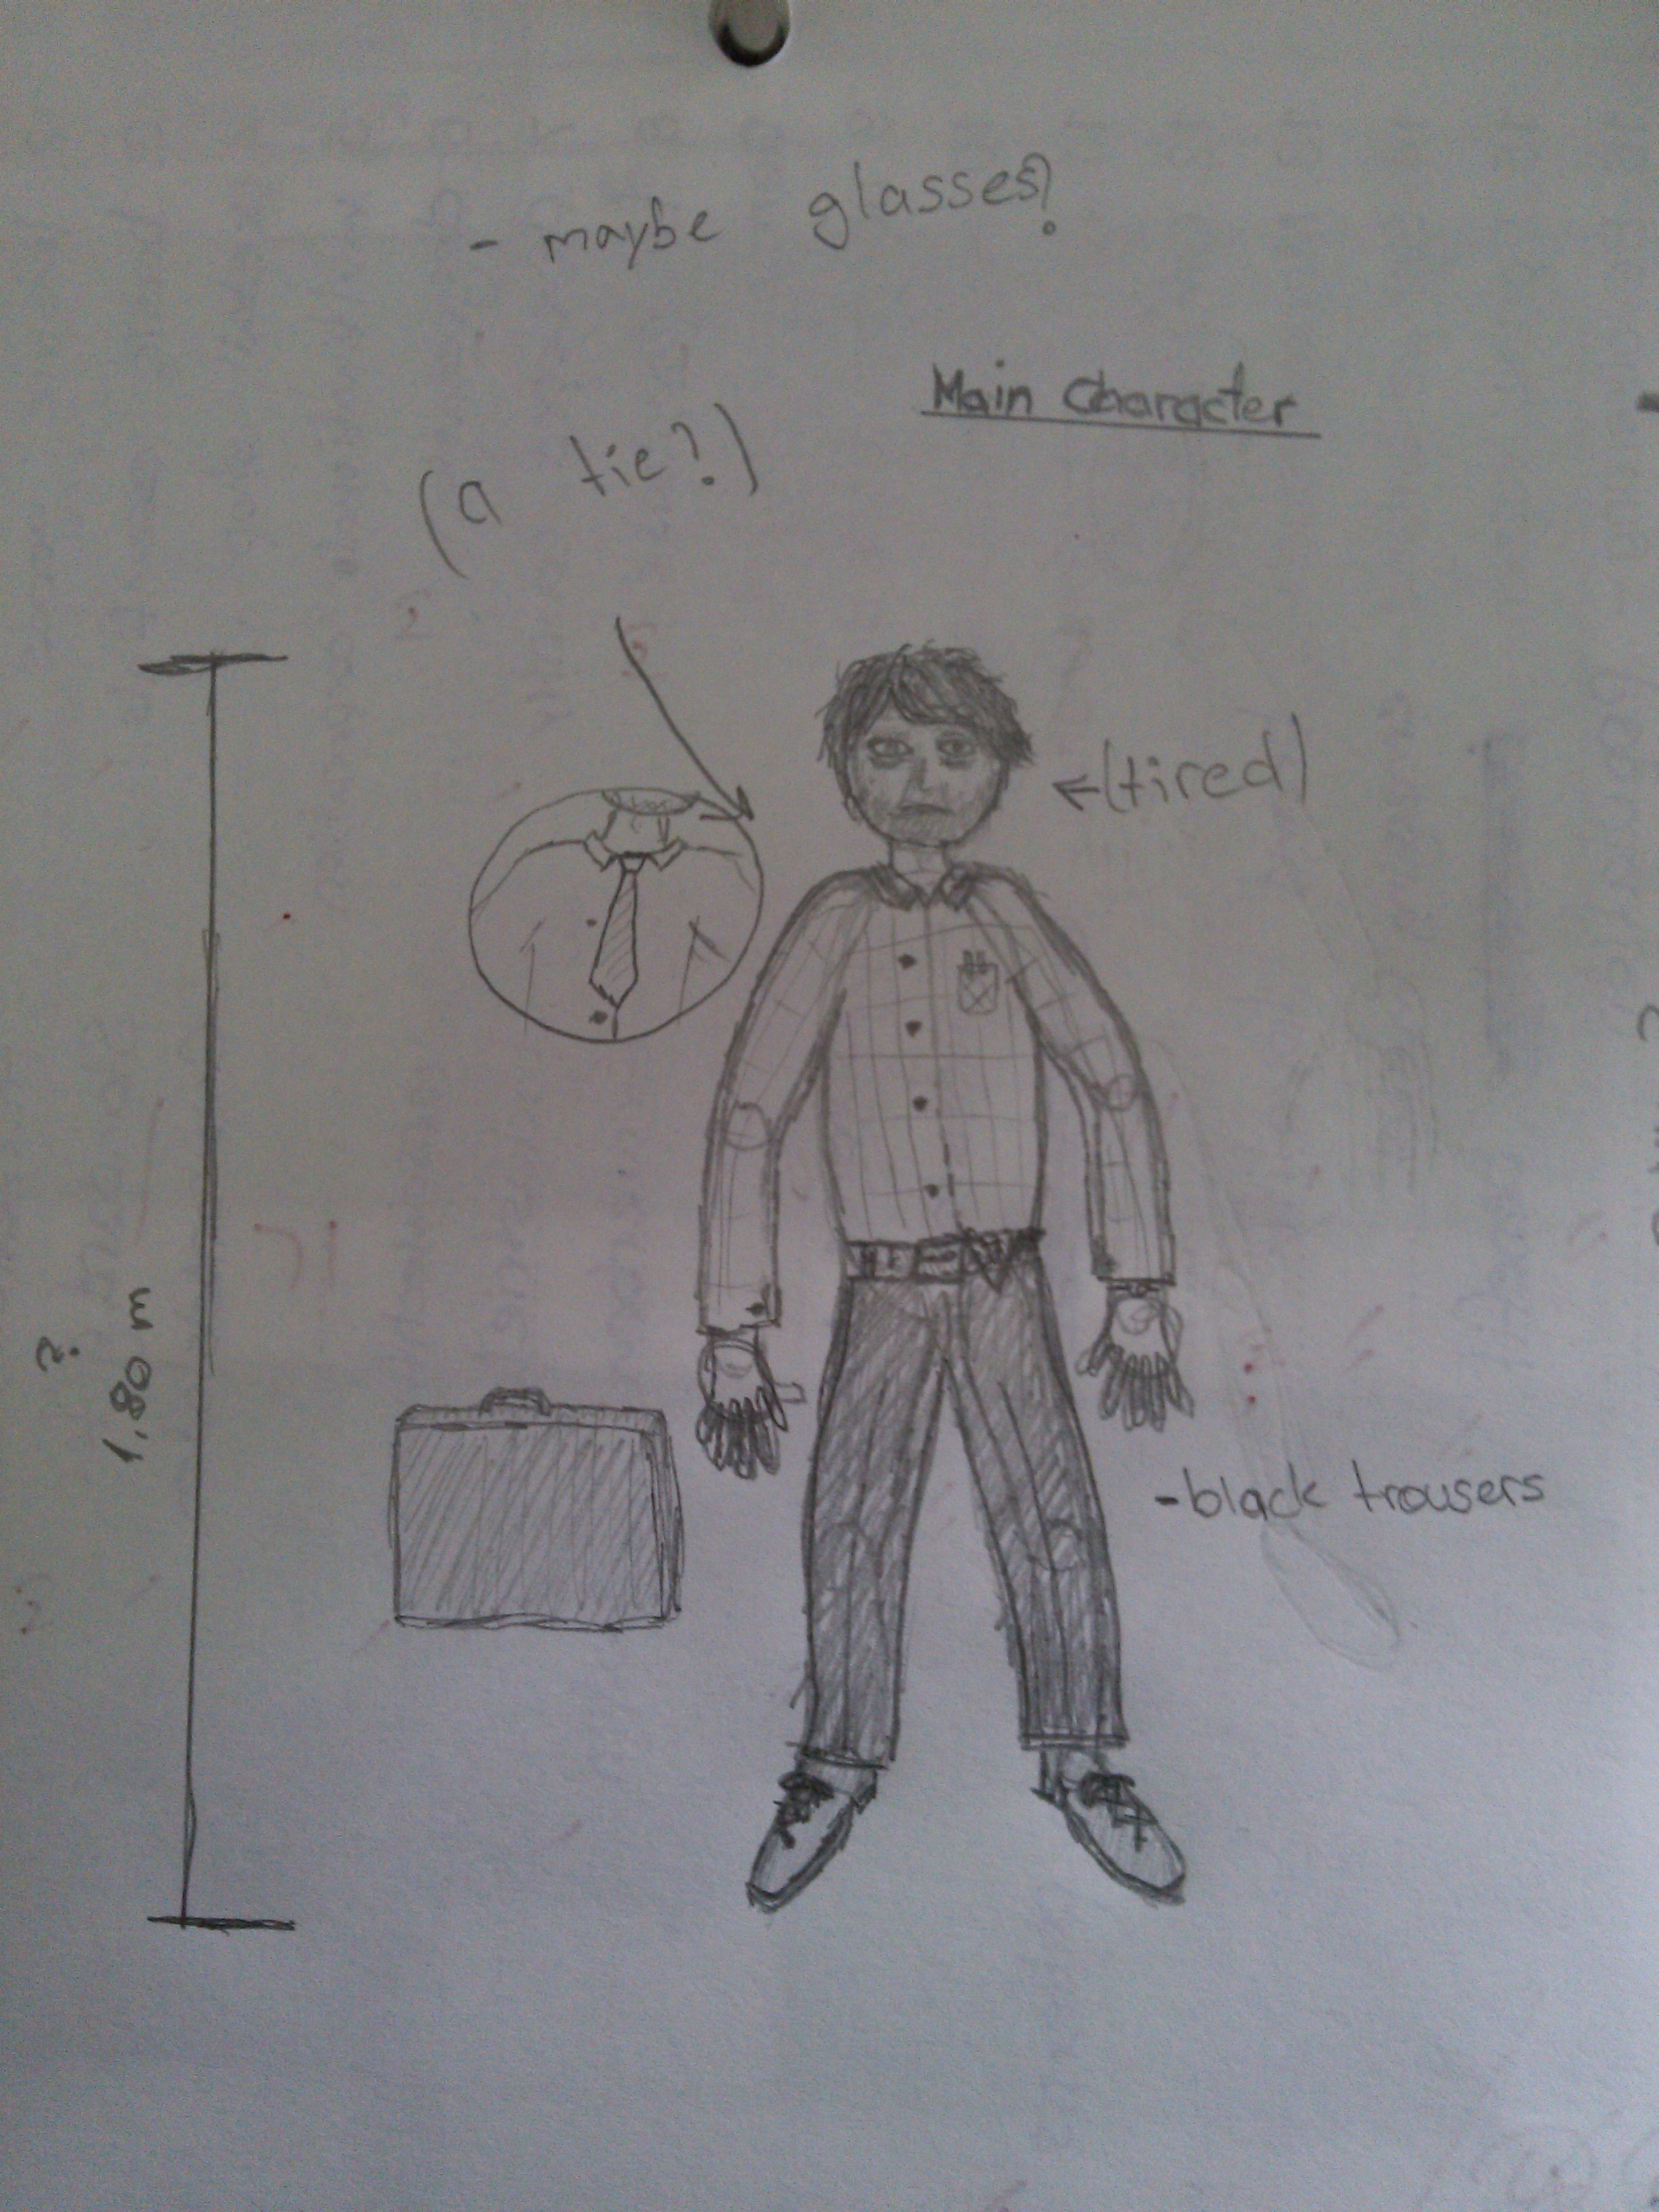 - maybe glasses?
Main Character
(a tie?)
←(tired)
?
1,80 m
-black trousers